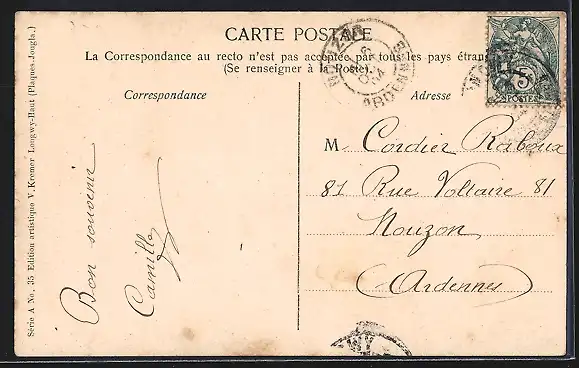 CARTE POSTALE
La Correspondance au recto n'est pas acceptée par tous les pays étran
(Se renseigner à la Poste).
Correspondance
Adresse
Bon souvenir
Camille
M. Cordier Raboux
81 Rue Voltaire 81
Nouzon
(Ardennes)
Série A No. 35 Edition artistique V. Kremer Longwy-Haut (Plaques Jougla.)
NOUZON
ARDENNES
5
POSTES